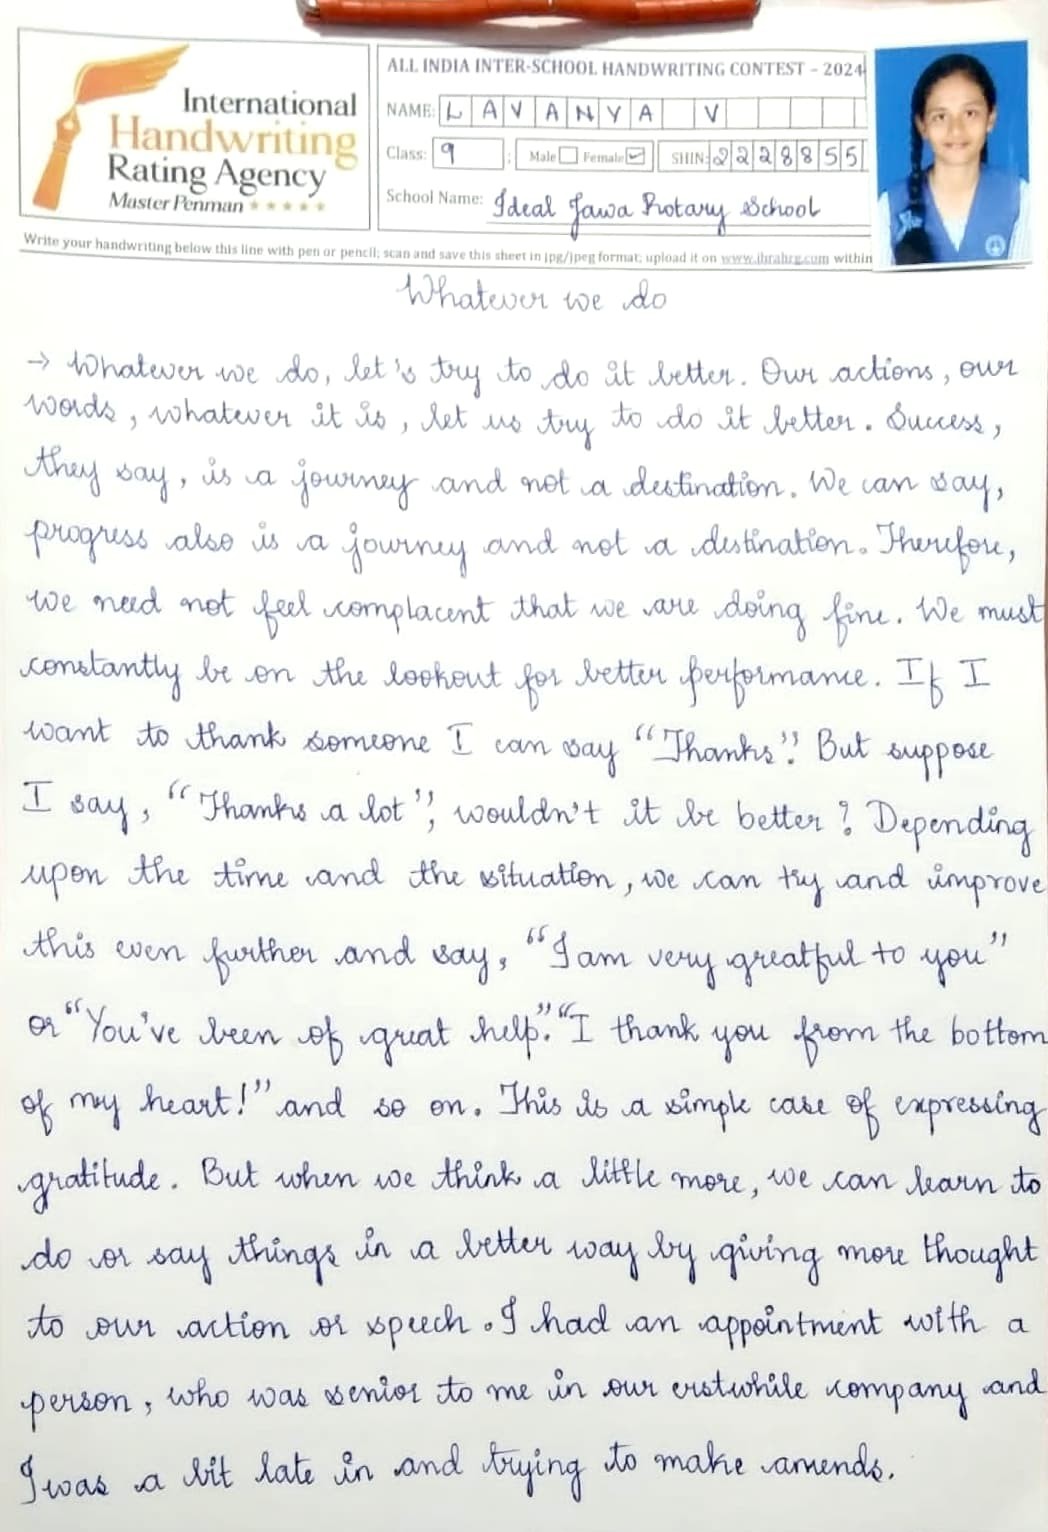 International
Handwriting
Rating Agency
Master Penman
ALL INDIA INTER-SCHOOL HANDWRITING CONTEST - 2024
NAME: LAVANYA V
Class: 9 Male Female SHIN: 2228855
School Name: Ideal Jawa Rotary School
Write your handwriting below this line with pen or pencil; scan and save this sheet in jpg/jpeg format; upload it on www.ihrahrg.com within
Whatever we do
→ Whatever we do, let's try to do it better. Our actions, our
words, whatever it is, let us try to do it better. Success,
they say, is a journey and not a destination. We can say,
progress also is a journey and not a destination. Therefore,
we need not feel complacent that we are doing fine. We must
constantly be on the lookout for better performance. If I
want to thank someone I can say "Thanks". But suppose
I say, "Thanks a lot", wouldn't it be better? Depending
upon the time and the situation, we can try and improve
this even further and say, "I am very greatful to you"
or "You've been of great help". "I thank you from the bottom
of my heart!" and so on. This is a simple case of expressing
gratitude. But when we think a little more, we can learn to
do or say things in a better way by giving more thought
to our action or speech. I had an appointment with a
person, who was senior to me in our erstwhile company and
I was a bit late in and trying to make amends.